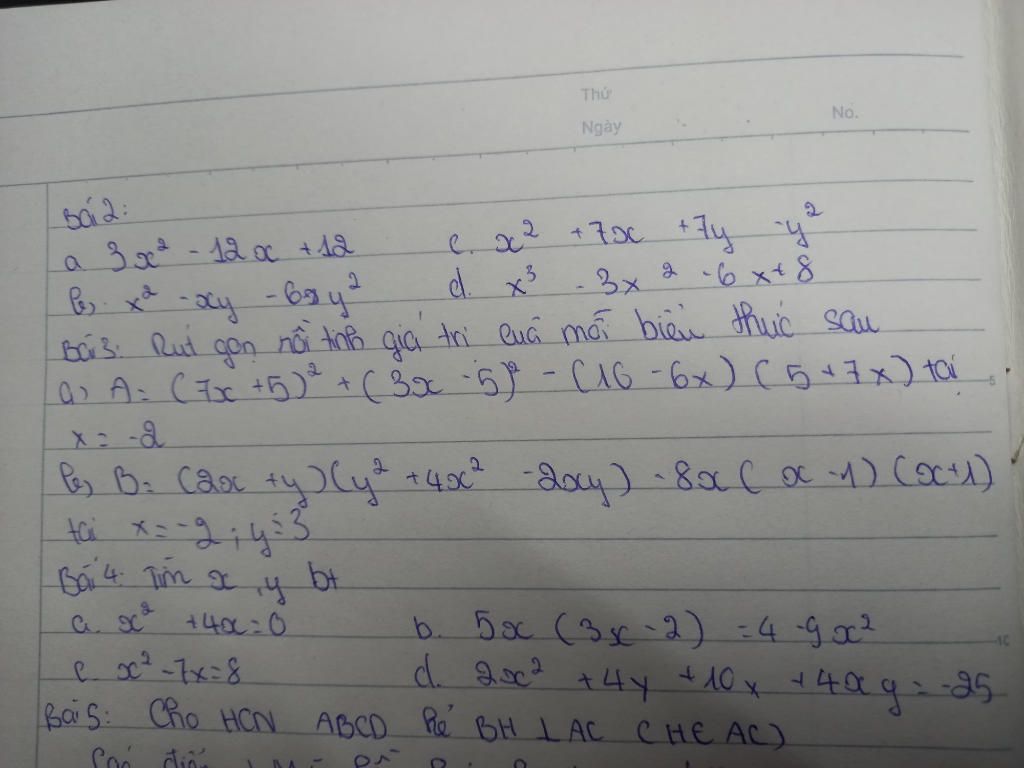 Thứ
Ngày No.
Bài 2:
a 3x² - 12x + 12 c. x² + 7x + 7y - y²
b, x² - xy - 6y² d. x³ - 3x² - 6x + 8
Bài 3: Rút gọn rồi tính giá trị của mỗi biểu thức sau
a) A = (7x + 5)² + (3x - 5)² - (16 - 6x) (5 + 7x) tại
x = -2
b, B = (2x + y)(y² + 4x² - 2xy) - 8x (x - 1) (x + 1)
tại x = -2 ; y = 3
Bài 4: Tìm x, y bt
a. x² + 4x = 0 b. 5x (3x - 2) = 4 - 9x²
c. x² - 7x = 8 d. 2x² + 4y + 10x + 4xy = -25
Bài 5: Cho HCN ABCD kẻ BH ⊥ AC (H ∈ AC)